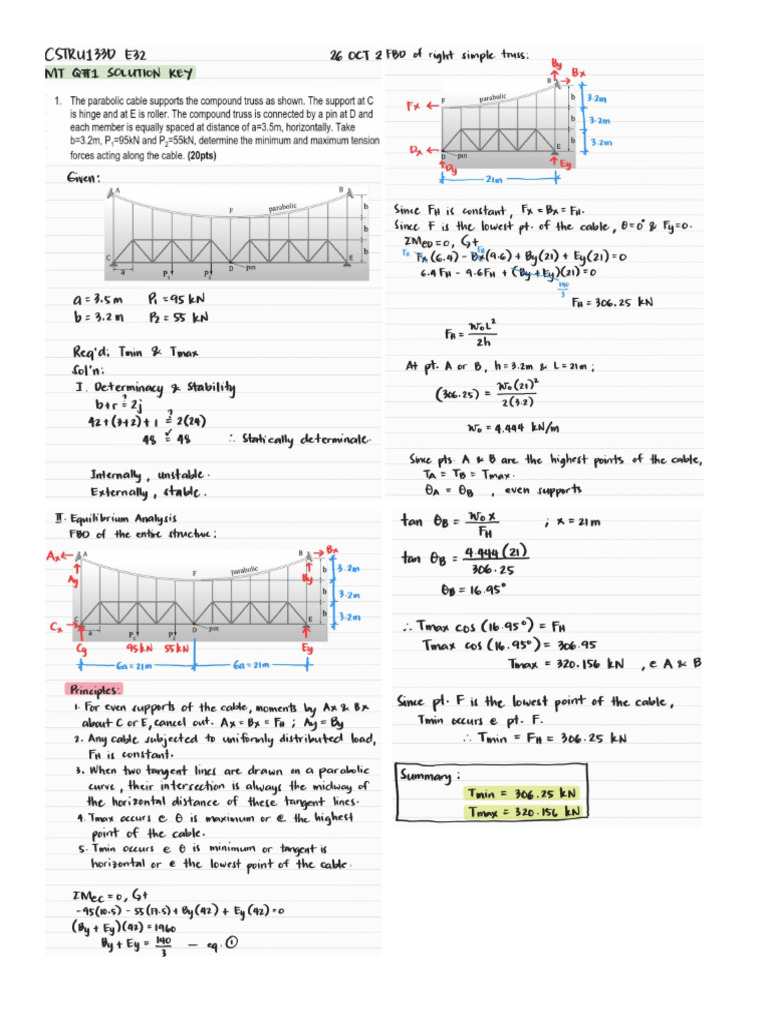 CSTRU133D E32
26 OCT 2
MT Q#1 SOLUTION KEY
1. The parabolic cable supports the compound truss as shown. The support at C
is hinge and at E is roller. The compound truss is connected by a pin at D and
each member is equally spaced at distance of a=3.5m, horizontally. Take
b=3.2m, P₁=95kN and P₂=55kN, determine the minimum and maximum tension
forces acting along the cable. (20pts)
Given:
A
B
F
parabolic
b
b
b
C
a
P₁
P₂
D
pin
E
a = 3.5 m P₁ = 95 kN
b = 3.2 m P₂ = 55 kN
Req'd: Tmin & Tmax
Sol'n:
I. Determinacy & Stability
b+r ≟ 2j
42+(3+2)+1 ≟ 2(24)
48 = 48 ∴ Statically determinate.
Internally, unstable.
Externally, stable.
II. Equilibrium Analysis
FBD of the entire structure:
Ax
A
B
Bx
Ay
F
parabolic
By
b 3.2m
b 3.2m
b 3.2m
Cx
C
a
P₁
P₂
D
pin
E
Cy
95kN 55kN
Ey
6a = 21m 6a = 21m
Principles:
1. For even supports of the cable, moments by Ax & Bx
about C or E, cancel out. Ax = Bx = FH ; Ay = By
2. Any cable subjected to uniformly distributed load,
FH is constant.
3. When two tangent lines are drawn on a parabolic
curve, their intersection is always the midway of
the horizontal distance of these tangent lines.
4. Tmax occurs @ θ is maximum or @ the highest
point of the cable.
5. Tmin occurs @ θ is minimum or tangent is
horizontal or @ the lowest point of the cable.
ΣMEC = 0, ↻+
-95(10.5) - 55(17.5) + By(42) + Ey(42) = 0
(By + Ey)(42) = 1960
By + Ey = 140/3 — eq. ①
FBD of right simple truss:
By
B
Bx
Fx
F
parabolic
b 3.2m
b 3.2m
b 3.2m
Dx
D
pin
E
Dy
Ey
21m
Since FH is constant, Fx = Bx = FH.
Since F is the lowest pt. of the cable, θ=0° & Fy=0.
ΣMED = 0, ↻+
FH FH
Fx(6.4) - Bx(9.6) + By(21) + Ey(21) = 0
6.4FH - 9.6FH + (By+Ey)(21) = 0
140/3
FH = 306.25 kN
FH = w₀L²/2h
At pt. A or B, h = 3.2m & L = 21m;
(306.25) = w₀(21)²/2(3.2)
w₀ = 4.444 kN/m
Since pts. A & B are the highest points of the cable,
TA = TB = Tmax.
θA = θB , even supports
tan θB = w₀x/FH ; x = 21m
tan θB = 4.444(21)/306.25
θB = 16.95°
∴ Tmax cos (16.95°) = FH
Tmax cos (16.95°) = 306.95
Tmax = 320.156 kN , @ A & B
Since pt. F is the lowest point of the cable,
Tmin occurs @ pt. F.
∴ Tmin = FH = 306.25 kN
Summary:
Tmin = 306.25 kN
Tmax = 320.156 kN